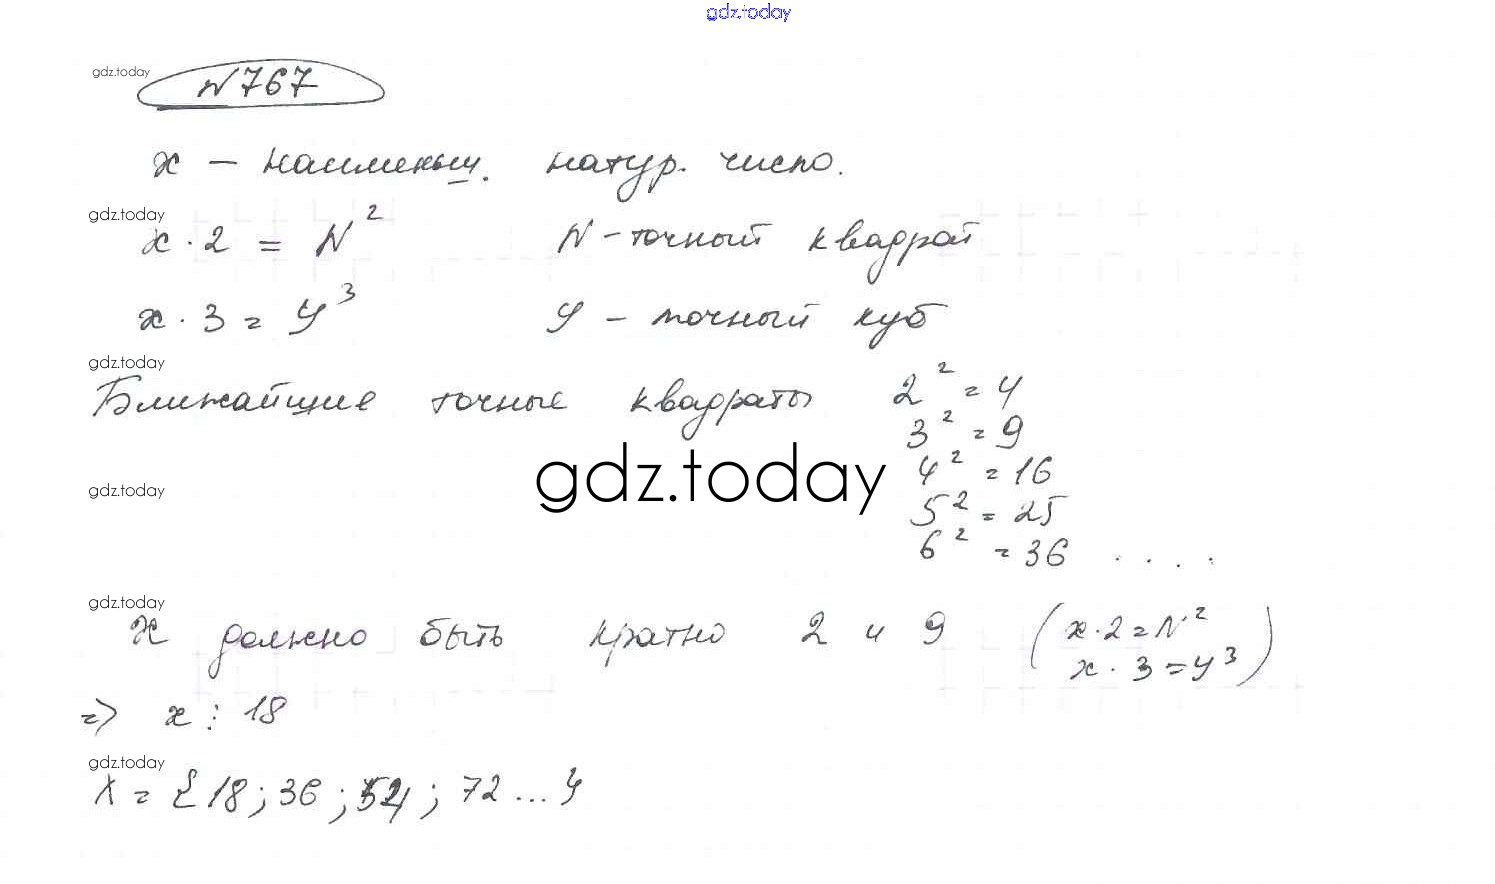 gdz.today
gdz.today
N 767
x – наименьш. натур. число.
gdz.today
x · 2 = N² N – точный квадрат
x · 3 = y³ y – точный куб
gdz.today
Ближайшие точные квадраты 2² = 4
3² = 9
gdz.today
4² = 16
gdz.today
5² = 25
6² = 36 ....
gdz.today
x должно быть кратно 2 и 9 (x·2 = N²
x · 3 = y³)
=> x ⋮ 18
gdz.today
X = {18; 36; 54; 72 ... }